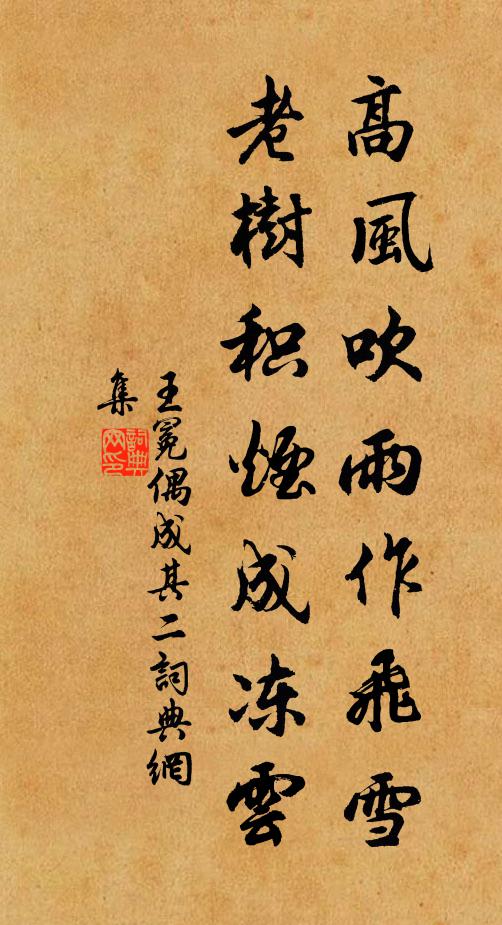 高風吹雨作飛雪
老樹积煙成冻雲
王冕偶成其二詞典網
集
詞典
网印